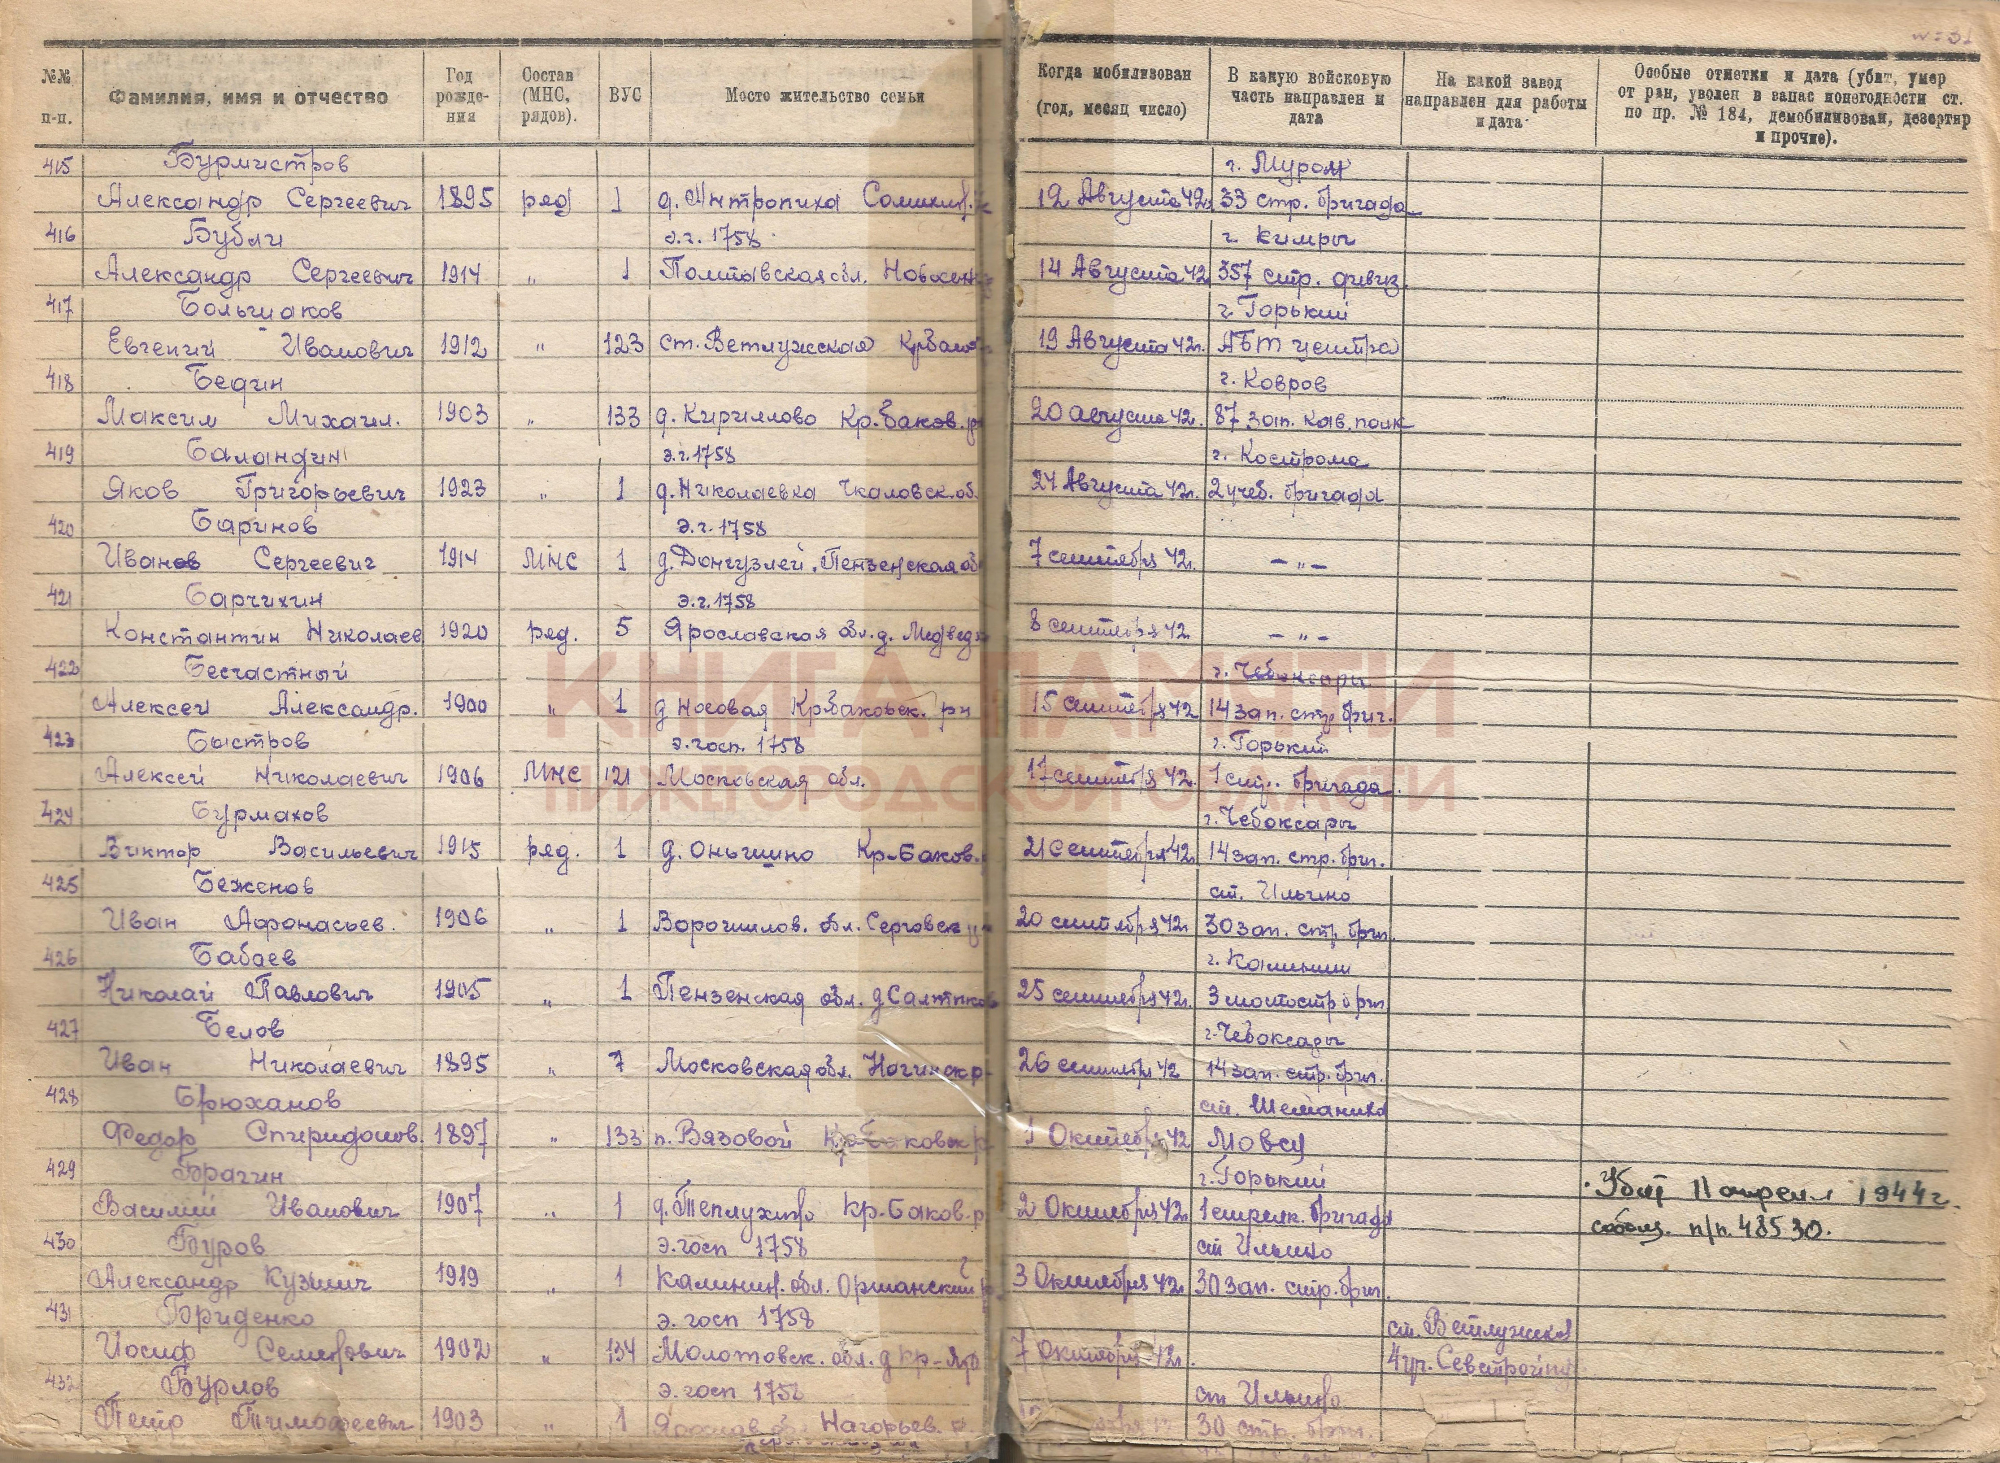 №№ п-п.
Фамилия, имя и отчество
Год рожде-ния
Состав (МНС, рядов).
ВУС
Место жительство семьи
Когда мобилизован (год, месяц число)
В какую войсковую часть направлен и дата
На какой завод направлен для работы и дата
Особые отметки и дата (убит, умер от ран, уволен в запас ионегодности ст. по пр. № 184, демобилизован, дезертир и прочие).
415 Бурмистров г. Муром
Александр Сергеевич 1895 ряд 1 д. Антропиха 12 Августа 42г. 33 стр. бригада
416 Бубли э.г. 1758 г. Кимры
Александр Сергеевич 1914 " 1 Полтавская обл. 14 Августа 42 357 стр. дивиз.
417 Большаков г. Горький
Евгений Иванович 1912 " 123 ст. Ветлужская 19 Августа 42г. АБТ центра
418 Бедин г. Ковров
Максим Михаил. 1903 " 133 д. Кириллово Кр.баков. р 20 августа 42г. 87 зап. кав. полк
419 Баландин э.г. 1758 г. Кострома
Яков Григорьевич 1923 " 1 д. Николаевка Чкаловск. об. 24 Августа 42г. 2 учеб. бригада
420 Баринов э.г. 1758
Иванов Сергеевич 1914 МНС 1 д. Донгузлей. Пензенская об 7 сентября 42г. – " –
421 Барчихин э.г. 1758
Константин Николаев 1920 ряд. 5 Ярославская обл. д. 8 сентября 42 – " –
422 Бесчастный г. Чебоксары
Алексей Александр. 1900 " 1 д Носовая Кр.баковск. рн 15 сентября 42 14 зап. стр. бриг.
423 Быстров э. госп. 1758 г. Горький
Алексей Николаевич 1906 МНС 121 Московская обл. 17 сентября 42г. 1 стр. бригада
424 Бурмахов г. Чебоксары
Виктор Васильевич 1915 ряд. 1 д. Оньшино Кр-Баков. 21 сентября 42г. 14 зап. стр. бриг.
425 Беженов ст. Ильино
Иван Афонасьев. 1906 " 1 Ворошилов. обл. 20 сентября 42г. 30 зап. стр. бриг.
426 Бабаев г. Калинин
Николай Павлович 1905 " 1 Пензенская обл. д 25 сентября 42г. 3
427 Белов г. Чебоксары
Иван Николаевич 1895 " 7 Московская обл. Ногинск р- 26 сентября 42 14 зап. стр. бриг.
428 Брюханов ст. Шеманиха
Федор Спиридонов. 1897 " 133 п. Вязовой 1 Октября 42 Мовсу
429 Брагин г. Горький Убит 11 апреля 1944г.
Василий Иванович 1907 " 1 д. Кр-Баков. р 2 Октября 42г. 1 стрелк. бригада сообщ. п/п. 48530.
430 Буров э. госп 1758 ст Ильино
Александр Кузмич 1919 " 1 Калинин. обл. Оршанский 3 Октября 42г. 30 зап. стр. бриг.
431 Бриденко э. госп 1758 ст. Ветлужская
Иосиф Семенович 1902 " 134 Молотовск. обл. д 7 октября 42г. 4 уч.
432 Бурлов э. госп 1758 ст Ильино
Петр Тимофеевич 1903 " 1 Нагорьев. р. 30 стр. бриг.
КНИГА ПАМЯТИ
НИЖЕГОРОДСКОЙ ОБЛАСТИ